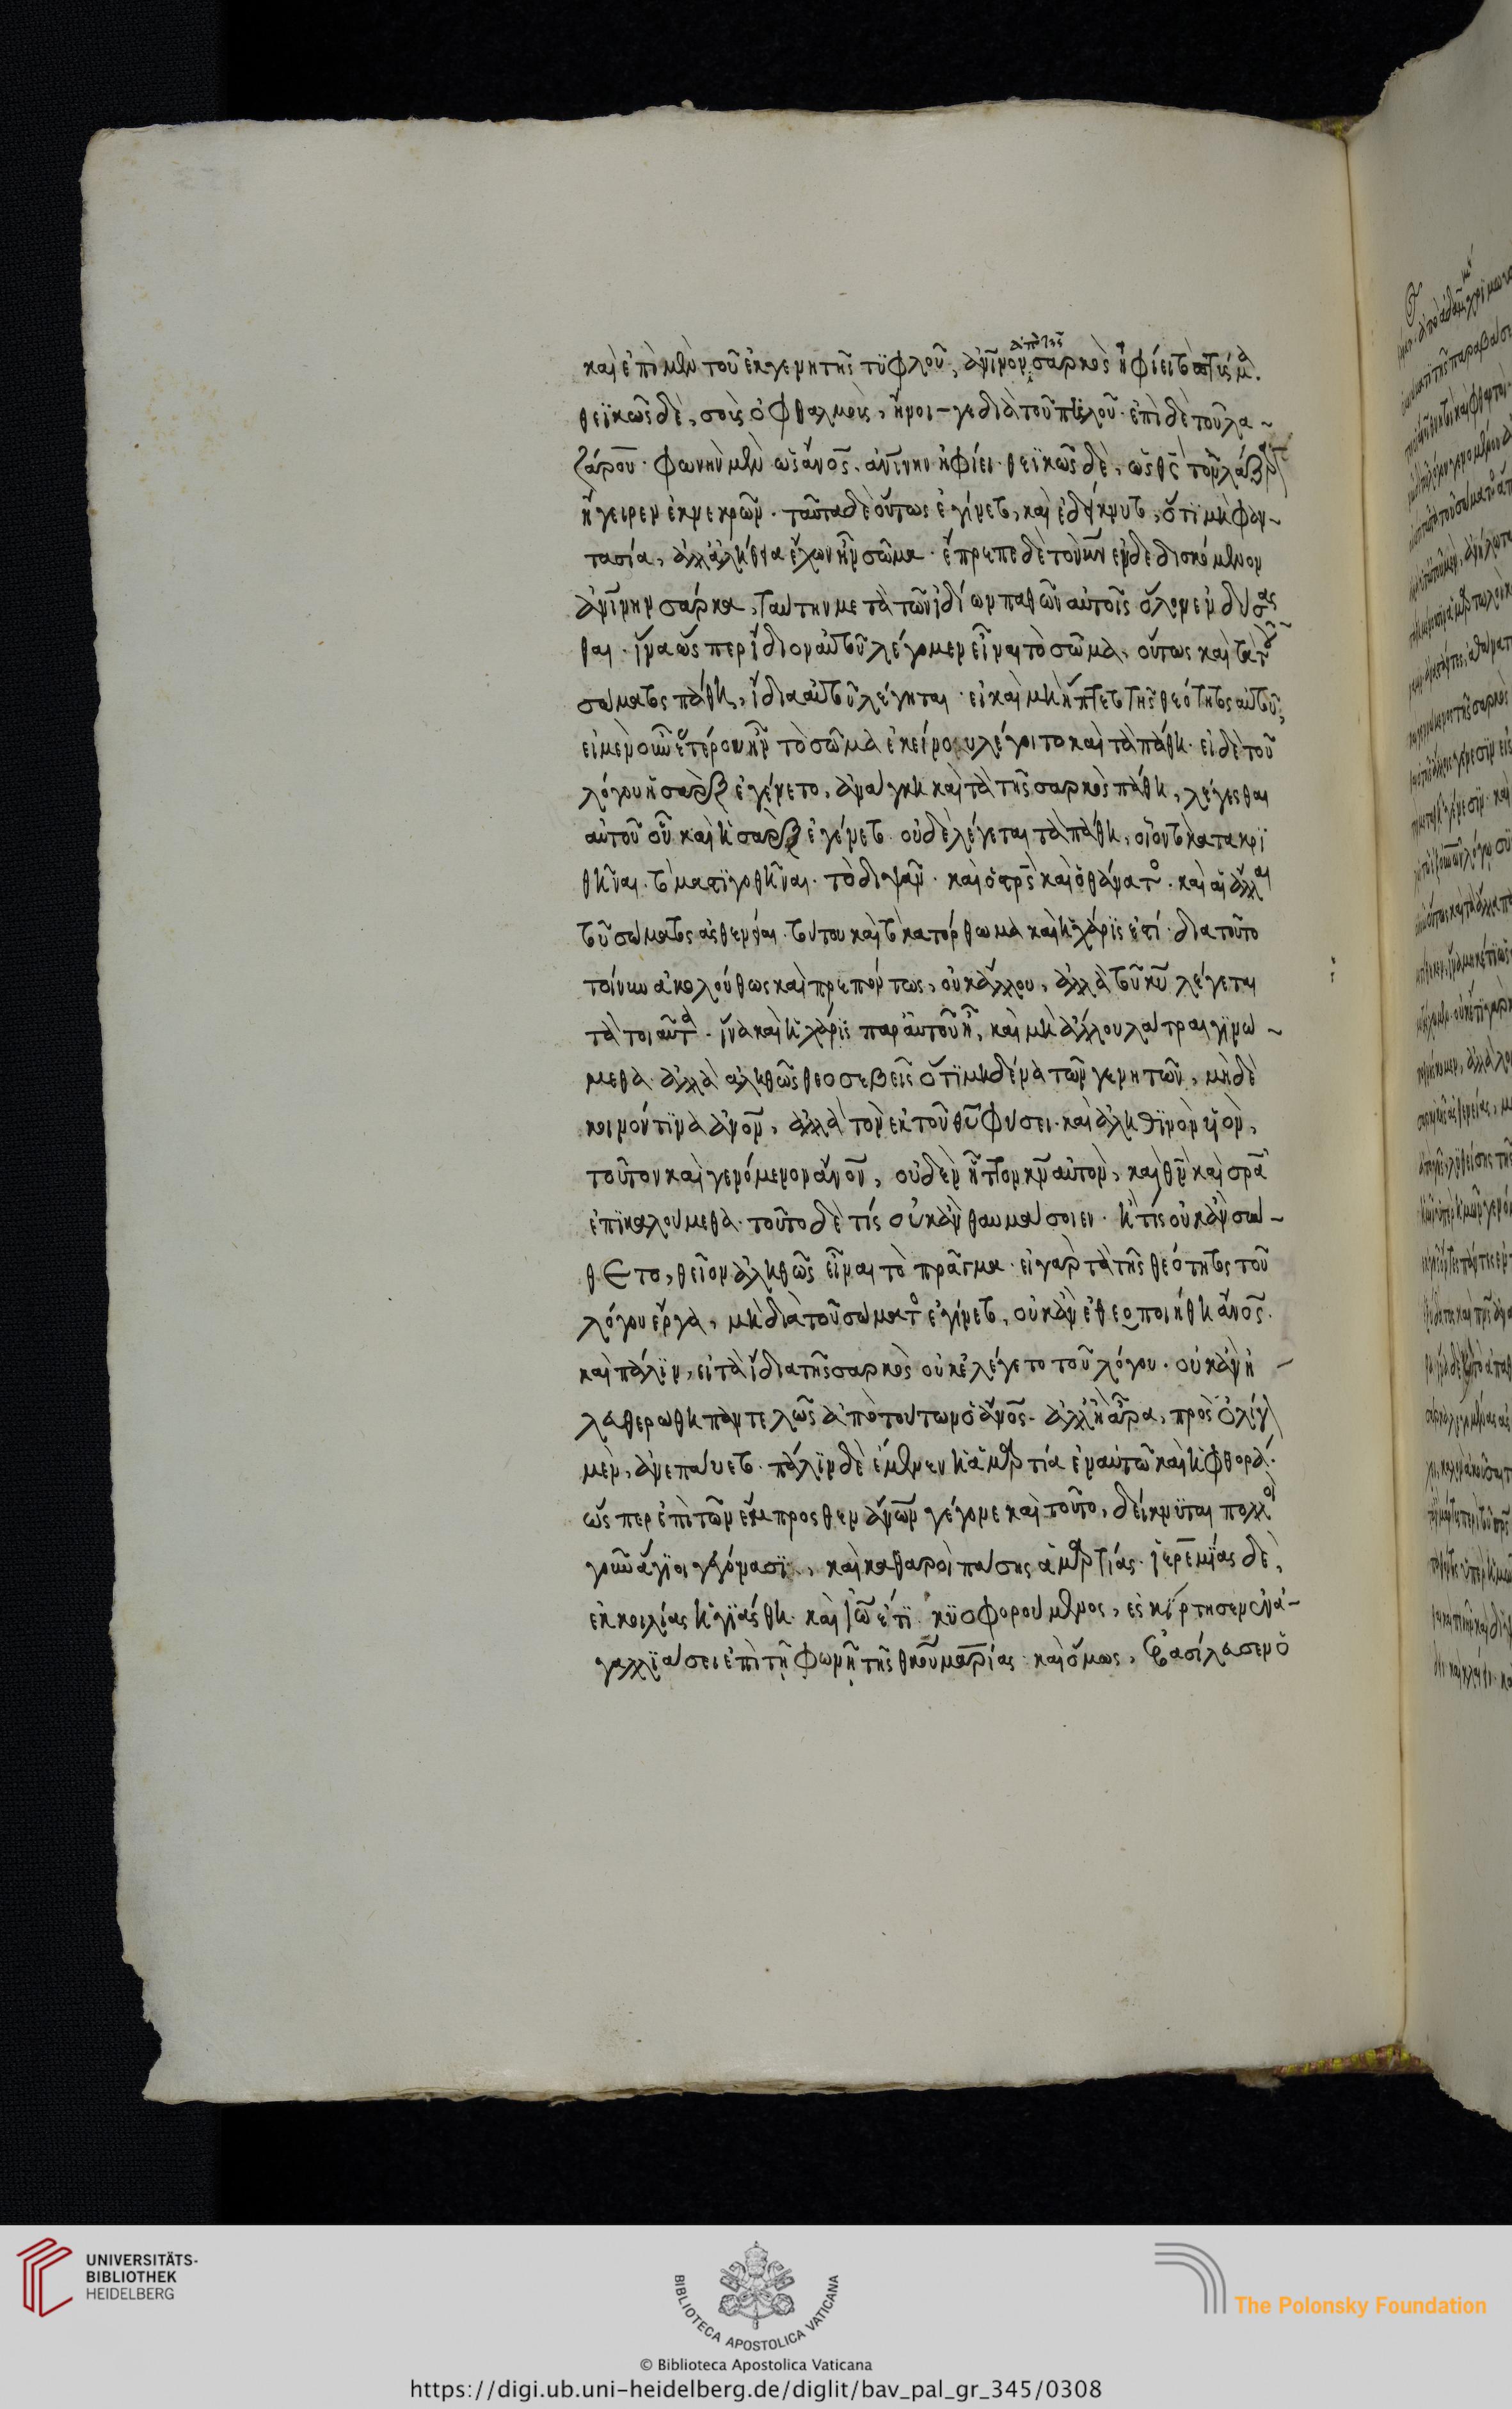 καὶ ἐπὶ μὲν τοῦ ἐκ γενητῆς τϋφλοῦ, ἀνῐνον ἀπὸ τῆς σαρκὸς ἠφίει τὸ πτύσμα.
θεϊκῶς δὲ, τοὺς ὀφθαλμοὺς, ἤνοιγε διὰ τοῦ πηλοῦ· ἐπὶ δὲ τοῦ λα-
ζάρου· φωνὴν μὲν ὡς ἄνο̅ς̅, ἀνίνην ἠφίει· θεϊκῶς δὲ, ὡς θ̅ς̅ τὸν λάζαρ
ἤγειρεν ἐκ νεκρῶν· ταῦτα δὲ οὕτως ἐγίνετο, καὶ ἐδείκνυτο, ὅτι μὴ φαν-
τασία, ἀλλ' ἀληθῶς ἔχων ἦν σῶμα· ἔπρεπε δὲ τὸν κ̅ν̅ ἐνδεδισκόμενον
ἀνίνην σάρκα, ταύτην μετὰ τῶν ἰδίων παθῶν αὐτῆς ὅλην ἐνδύσασ
θαι· ἵνα ὥσπερ ἴδιον αὐτοῦ λέγομεν εἶναι τὸ σῶμα, οὕτως καὶ τὰ τοῦ
σώματος πάθη, ἴδια αὐτοῦ λέγηται· εἰ καὶ μὴ ἥπτετο τῆς θεότητος αὐτοῦ·
εἰ μὲν οὖν ἑτέρου ἦν τὸ σῶμα ἐκείνου λέγοιτο καὶ τὰ πάθη· εἰ δὲ τοῦ
λόγου ἡ σὰρξ ἐγένετο, ἀνάγκη καὶ τὰ τῆς σαρκὸς πάθη, λέγεσθαι
αὐτοῦ οὗ καὶ ἡ σὰρξ ἐγένετο· οὗ δὲ λέγεται τὰ πάθη, οἷον τὸ κατακρι
θῆναι· τὸ μαστιγωθῆναι· τὸ διψᾶν· καὶ ὁ σ̅ρ̅ς̅ καὶ ὁ θάνατος· καὶ αἱ ἄλλαι
τοῦ σώματος ἀσθένειαι· τούτου καὶ τὸ κατόρθωμα καὶ ἡ χάρις ἐστί· διὰ τοῦτο
τοίνυν ἀκολούθως καὶ πρεπόντως, οὐκ ἄλλου, ἀλλὰ τοῦ κ̅υ̅ λέγεται
τὰ τοιαῦτα· ἵνα καὶ ἡ χάρις παρ' αὐτοῦ ἦ, καὶ μὴ ἄλλου λάτραι γινώ-
μεθα· ἀλλὰ ἀληθῶς θεοσεβεῖς ὅτι μηδένα τῶν γενητῶν, μὴ δὲ
κοινόν τινα ἄνο̅ν̅, ἀλλὰ τὸν ἐκ τοῦ θ̅υ̅ φύσει· καὶ ἀληθινὸν υἱὸν,
τοῦτον καὶ γενόμενον ἄνο̅ν̅, οὐδὲν ἧττον κ̅ν̅ αὐτὸν, καὶ θ̅ν̅ καὶ σ̅ρ̅α̅
ἐπικαλούμεθα· τοῦτο δὲ τίς οὐκ ἂν θαυμάσοιεν· ἢ τίς οὐκ ἂν συν-
θεῖτο, θεῖον ἀληθῶς εἶναι τὸ πρᾶγμα· εἰ γὰρ τὰ τῆς θεότητος τοῦ
λόγου ἔργα, μὴ διὰ τοῦ σώματος ἐγίνετο, οὐκ ἂν ἐθεοποιήθη ἄνο̅ς̅.
καὶ πάλιν, εἰ τὰ ἴδια τῆς σαρκὸς οὐκ ἐλέγετο τοῦ λόγου· οὐκ ἂν ἠ-
λευθερώθη παντελῶς ἀπὸ τούτων ὁ ἄνο̅ς̅· ἀλλ' εἰ ἄρα, πρὸς ὀλίγον
μὲν, ἀνεπαύετο· πάλιν δὲ ἔμενεν ἡ ἁμαρτία ἐν αὐτῷ καὶ ἡ φθορά.
ὥσπερ ἐπὶ τῶν ἔμπροσθεν ἄνω̅ν̅ γέγονε καὶ τοῦτο, δείκνυται πολλοὶ
γοῦν ἅγιοι γεγόνασι, καὶ καθαροὶ πάσης ἁμαρτίας· ἱερεμίας δὲ,
ἐκ κοιλίας ἡγιάσθη· καὶ ἰω̅ ἔτι κυοφορούμενος, ἐσκίρτησεν ἐν ἀ-
γαλλιάσει ἐπὶ τῇ φωνῇ τῆς θ̅κ̅ου μαρίας· καὶ ὅμως, ἐβασίλευσεν ὁ
UNIVERSITÄTS-
BIBLIOTHEK
HEIDELBERG
BIBLIOTECA APOSTOLICA VATICANA
The Polonsky Foundation
© Biblioteca Apostolica Vaticana
https://digi.ub.uni-heidelberg.de/diglit/bav_pal_gr_345/0308